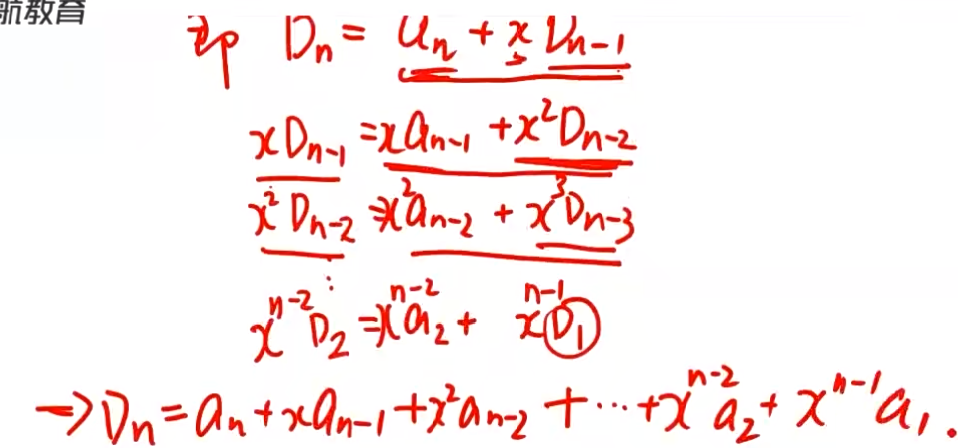 航教育
即 Dₙ = aₙ + x Dₙ₋₁
xDₙ₋₁ = xaₙ₋₁ + x²Dₙ₋₂
x²Dₙ₋₂ = x²aₙ₋₂ + x³Dₙ₋₃
⋮
xⁿ⁻²D₂ = xⁿ⁻²a₂ + xⁿ⁻¹D₁
→ Dₙ = aₙ + xaₙ₋₁ + x²aₙ₋₂ + ⋯ + xⁿ⁻²a₂ + xⁿ⁻¹a₁.